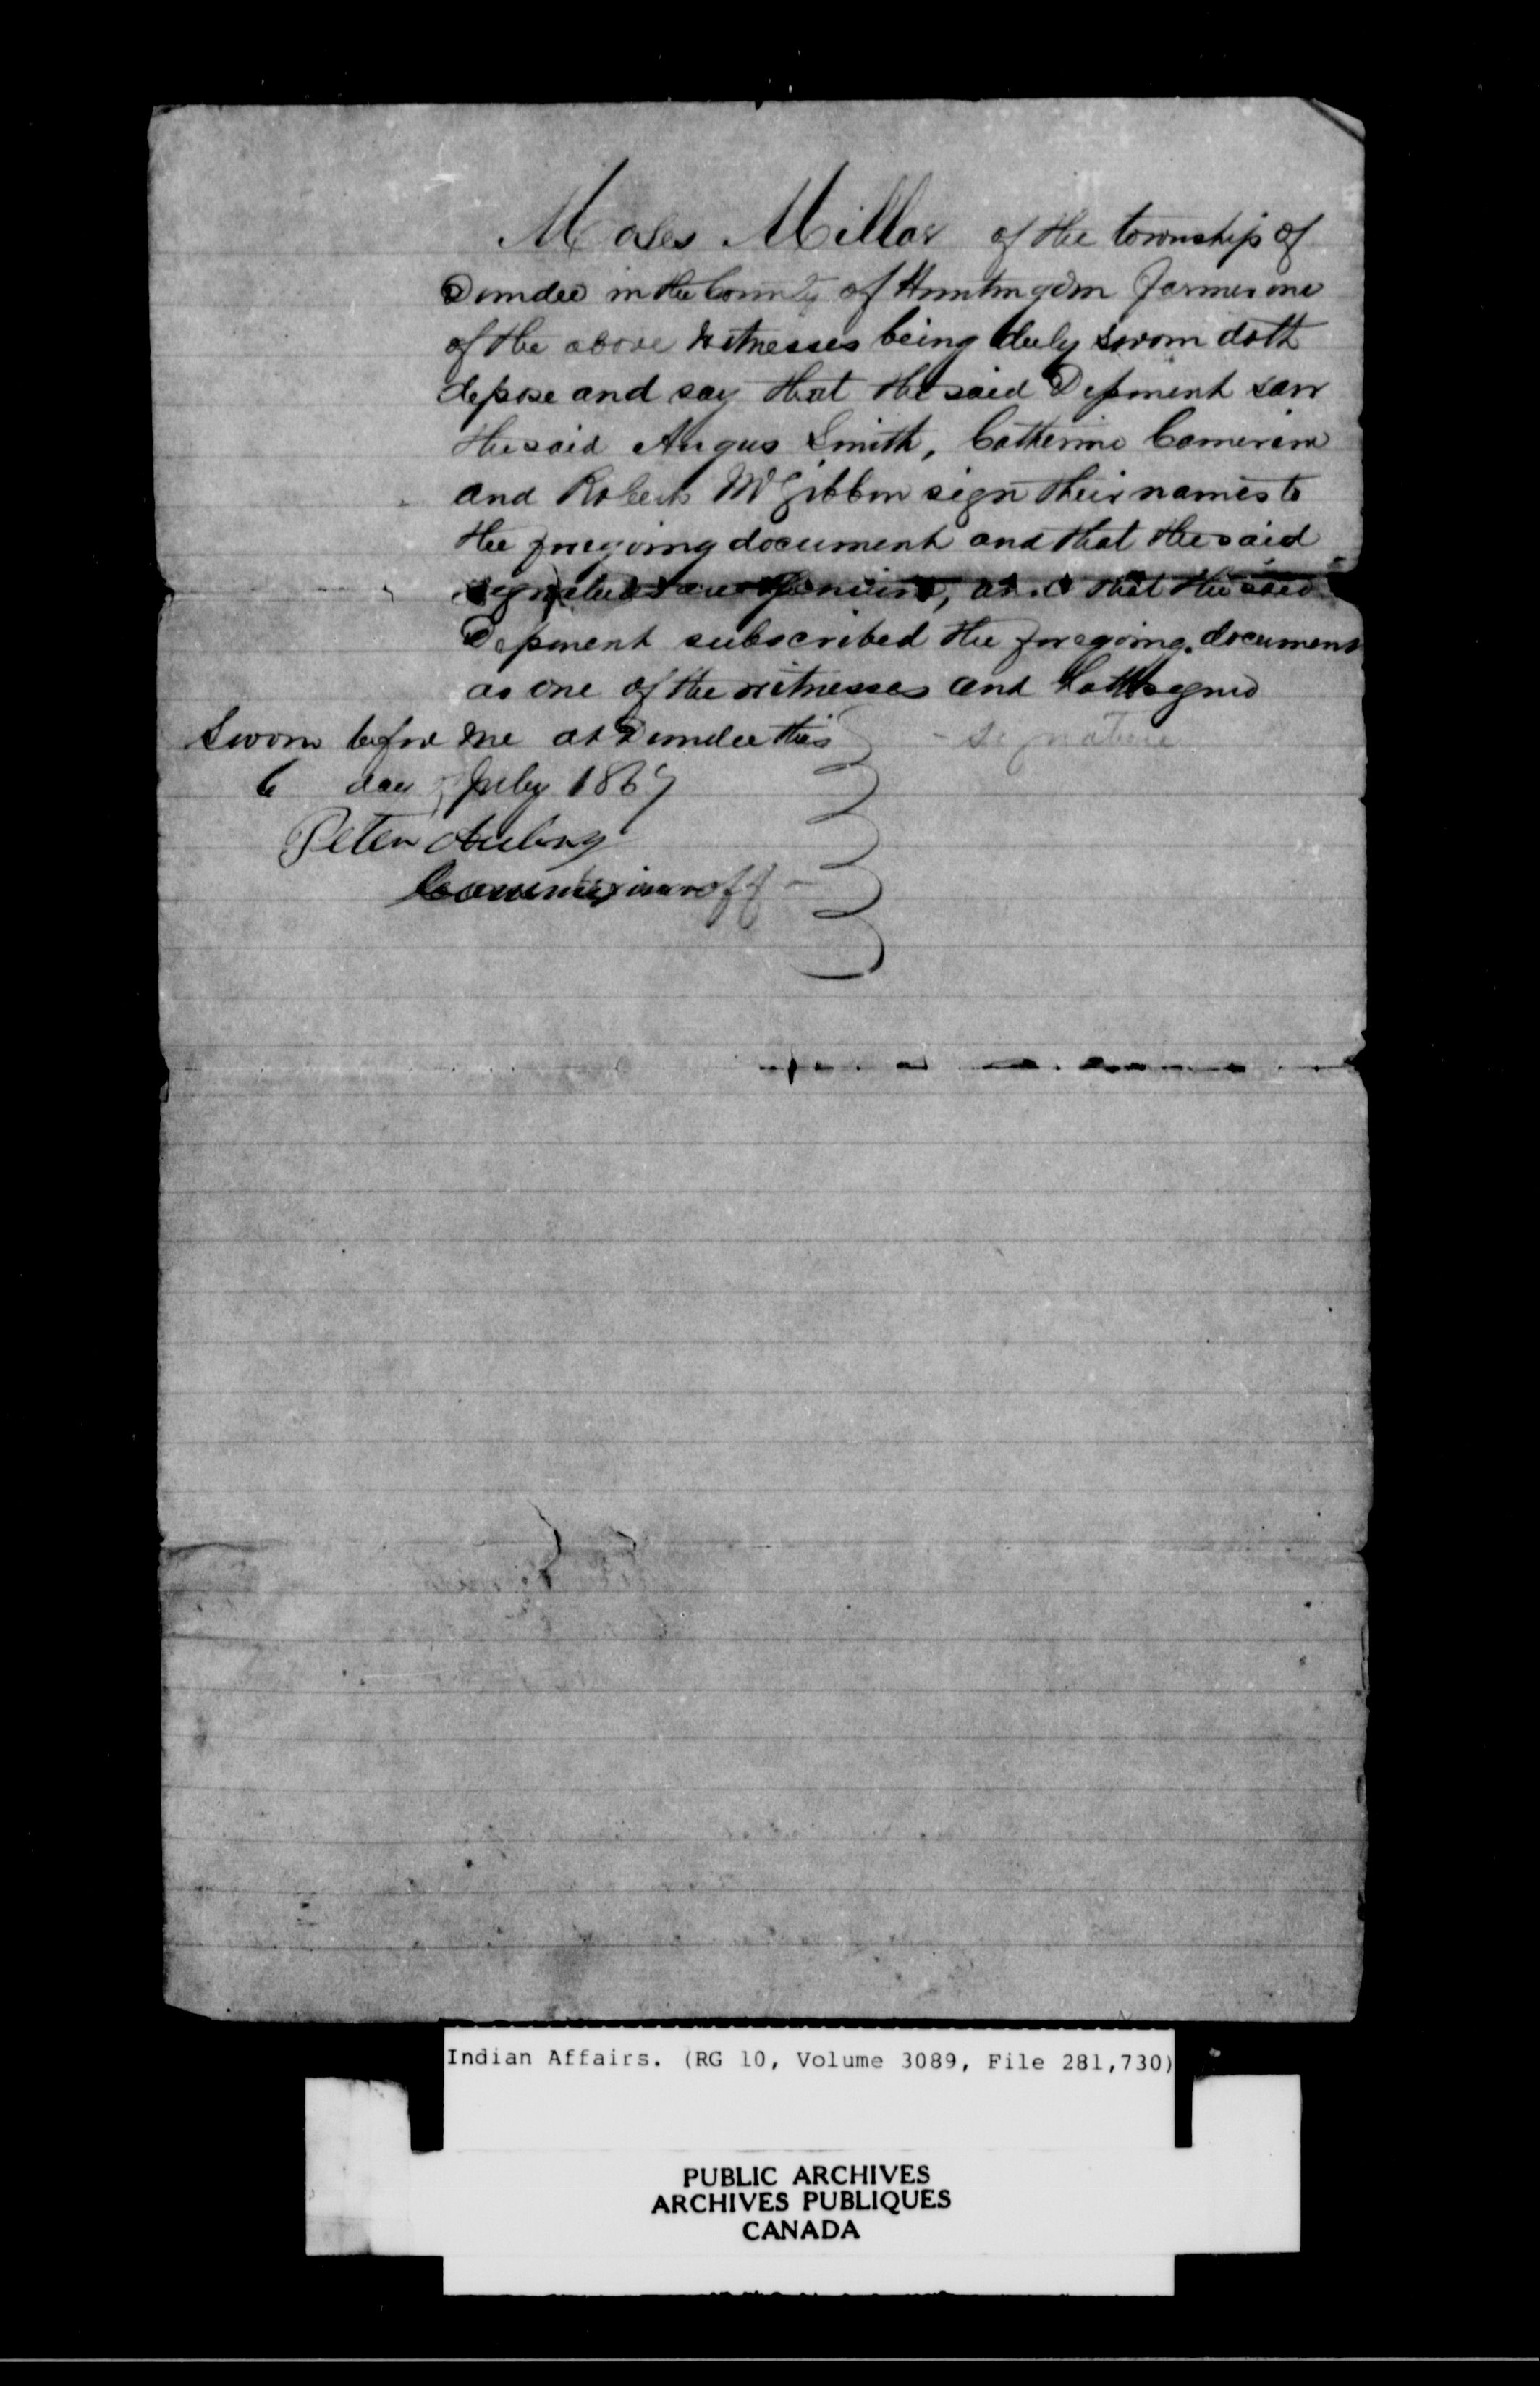 Moses Millar of the township of
Dundee in the County of Huntingdon farmer one
of the above witnesses being duly sworn doth
depose and say that the said Deponent saw
the said Angus Smith, Catherine Cameron
and Robert McGibbon sign their names to
the foregoing document and that the said
signatures are genuine, and that the said
Deponent subscribed the foregoing document
as one of the witnesses and hath signed
Sworn before me at Dundee this
- signature
6 day of July 1867
Peter
Commissioner
Indian Affairs. (RG 10, Volume 3089, File 281,730)
PUBLIC ARCHIVES
ARCHIVES PUBLIQUES
CANADA